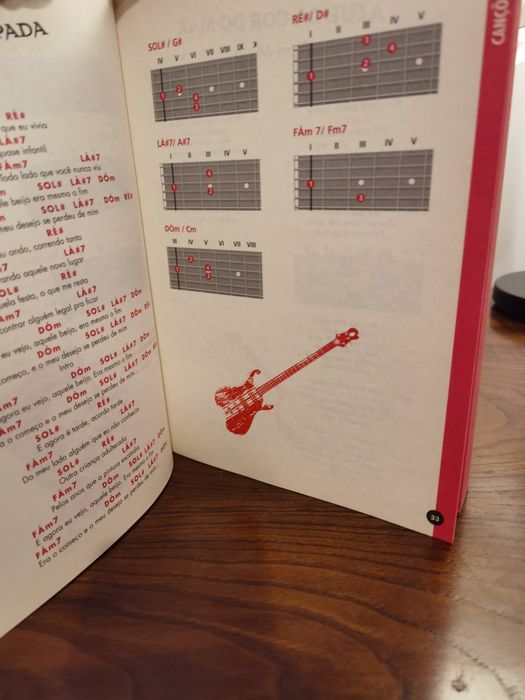 PADA
RÉ#
que eu vivia
LÁ#7
quase infantil
FÁm7 LÁ#7
Todo lado que você nunca viu
SOL# LÁ#7 DÓm
beijo era mesmo o fim
SOL# LÁ#7 DÓm RÉ#
meu desejo se perdeu de mim
RÉ#
ou ando, correndo tanto
LÁ#7
rando aquele novo lugar
SOL# RÉ#
uela festa, o que me resta
FÁm7 LÁ#7
contrar alguém legal pra ficar
DÓm SOL# LÁ#7 DÓm
e eu vejo, aquele beijo, era mesmo o fim
DÓm SOL# LÁ#7 DÓm RÉ#
omeço, e o meu desejo se perdeu de mim
Intro
FÁm7 DÓm SOL# LÁ#7 DÓm
agora eu vejo, aquele beijo, Era mesmo o fim
DÓm SOL# LÁ#7 DÓm
a o começo e o meu desejo se perdeu de mim
SOL# RÉ#
E agora é tarde, acordo tarde
FÁm7 LÁ#7
Do meu lado alguém que eu não conhecia
SOL# RÉ#
Outra criança adulterada
FÁm7 LÁ#7
Pelos anos que a pintura escondia
FÁm7 DÓm SOL# LÁ#7 DÓm
E agora eu vejo, aquele beijo, Era mesmo o fim
FÁm7 DÓm SOL# LÁ#7 DÓm
Era o começo e o meu desejo se perdeu de mim
CANÇÕ
SOL# / G#
IV V VI VII VIII IX X
1 2 3 4
RÉ#/ D#
I II III IV V
1 2 3 4
LÁ#7/ A#7
I II III IV V
1 2 3
FÁm 7/ Fm7
I II III IV V
1 3
DÓm / Cm
III IV V VI VII VIII
1 2 3 4
33